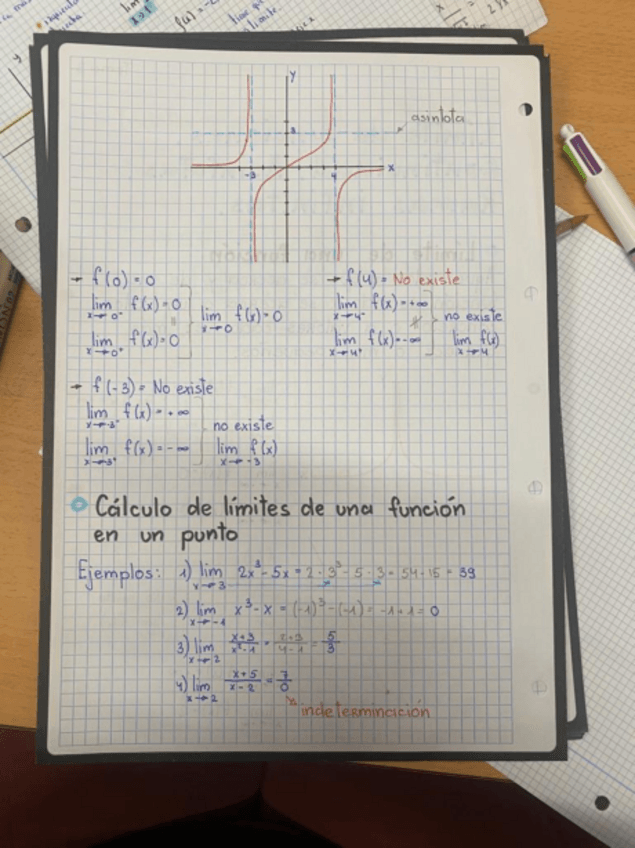 y
asíntota
3
-3
4
x
→ f(0) = 0
lim x→0⁻ f(x) = 0
lim x→0⁺ f(x) = 0
lim x→0 f(x) = 0
→ f(4) = No existe
lim x→4⁻ f(x) = +∞
lim x→4⁺ f(x) = -∞
no existe
lim x→4 f(x)
→ f(-3) = No existe
lim x→-3⁻ f(x) = +∞
lim x→-3⁺ f(x) = -∞
no existe
lim x→-3 f(x)
Cálculo de límites de una función
en un punto
Ejemplos: 1) lim x→3 2x³ - 5x = 2 · 3³ - 5 · 3 = 54 - 15 = 39
2) lim x→-1 x³ - x = (-1)³ - (-1) = -1 + 1 = 0
3) lim x→2 x+3/x²-1 = 2+3/4-1 = 5/3
4) lim x→2 x+5/x-2 = 7/0
indeterminación